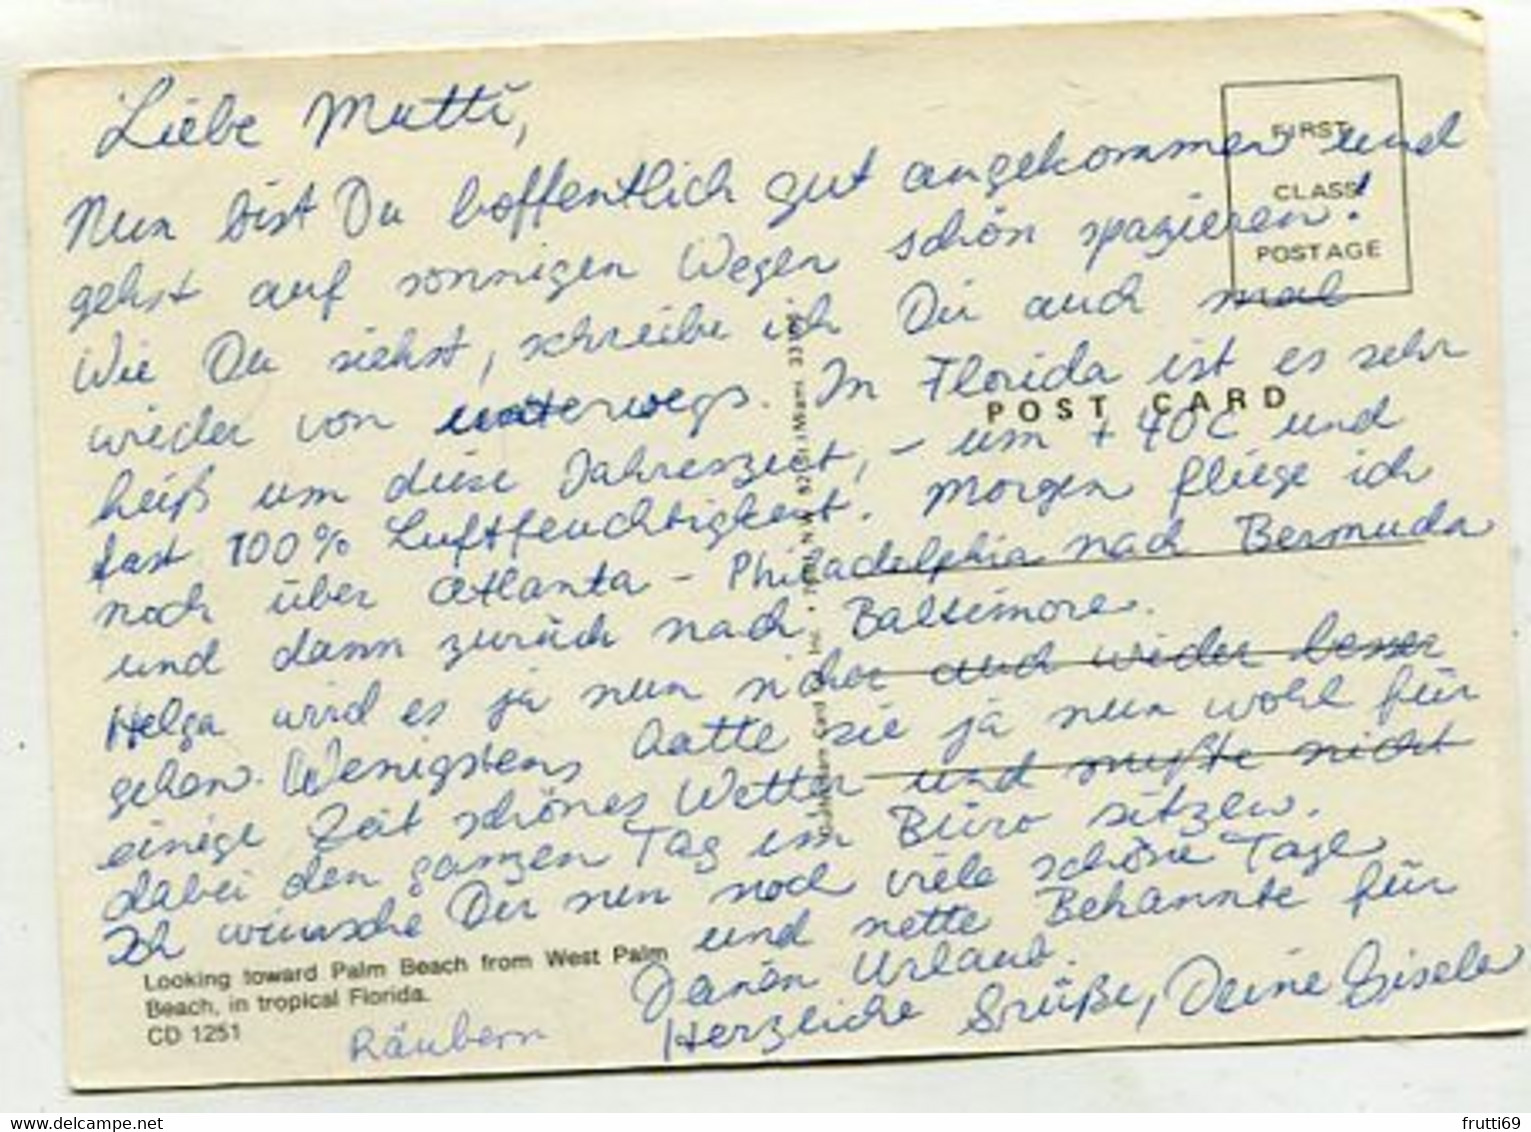 Liebe Mutti,
Nun bist Du hoffentlich gut angekommen und
gehst auf sonnigen Wegen schön spazieren!
Wie Du siehst, schreibe ich Dir auch mal
wieder von unterwegs. In Florida ist es sehr
heiß um diese Jahreszeit, - um + 40C und
fast 100% Luftfeuchtigkeit. Morgen fliege ich
noch über Atlanta - Philadelphia nach Bermuda
und dann zurück nach Baltimore.
Helga wird es ja nun sicher auch wieder besser
gehen. Wenigstens hatte sie ja nun wohl für
einige Zeit schönes Wetter und mußte nicht
dabei den ganzen Tag im Büro sitzen.
Ich wünsche Dir nun noch viele schöne Tage
und nette Bekannte für
Deinen Urlaub.
Herzliche Grüße, Deine Gisela
Räubern
FIRST
CLASS
POSTAGE
POST CARD
Looking toward Palm Beach from West Palm
Beach, in tropical Florida.
CD 1251
www.delcampe.net
frutti69